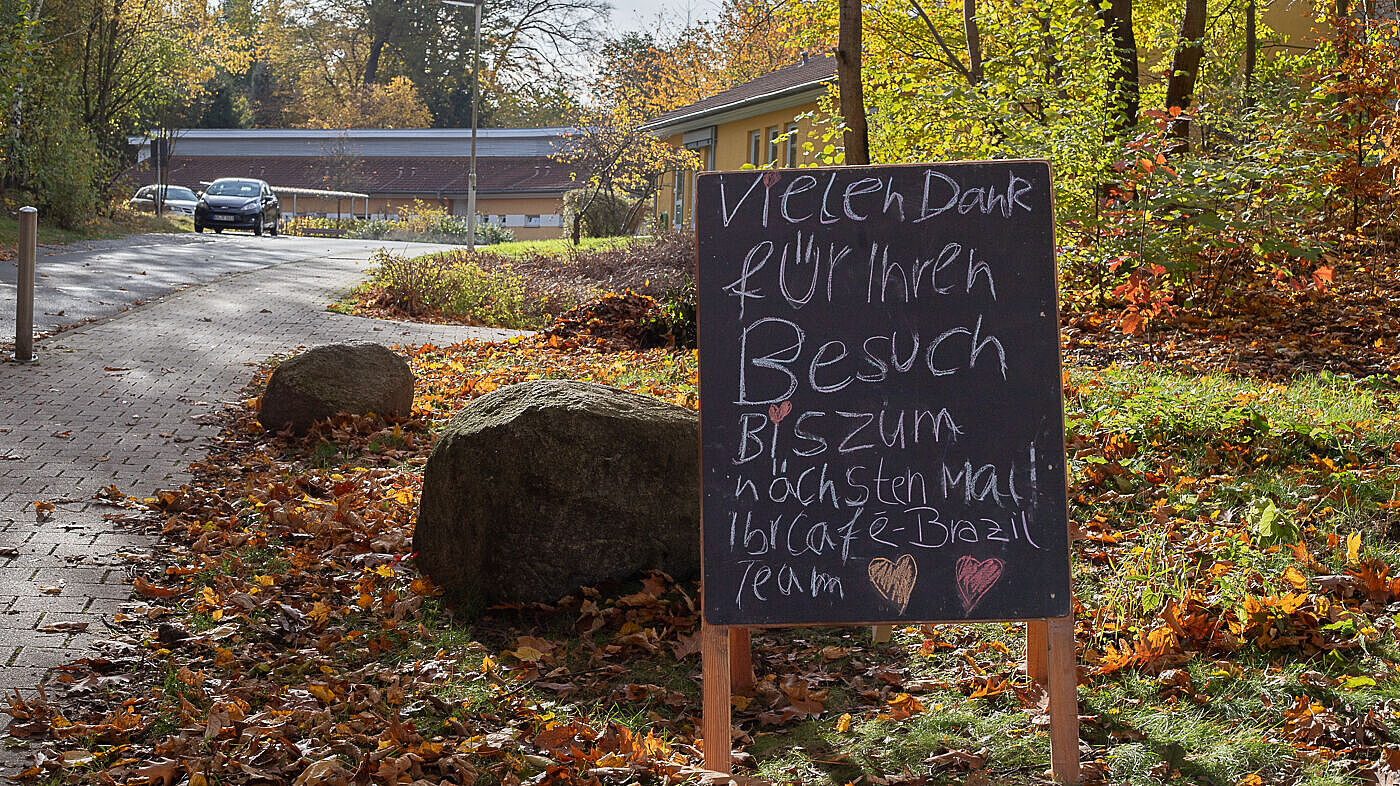 Vielen Dank
für Ihren
Besuch
Bis zum
nächsten Mal!
Ihr Café-Brazil
Team